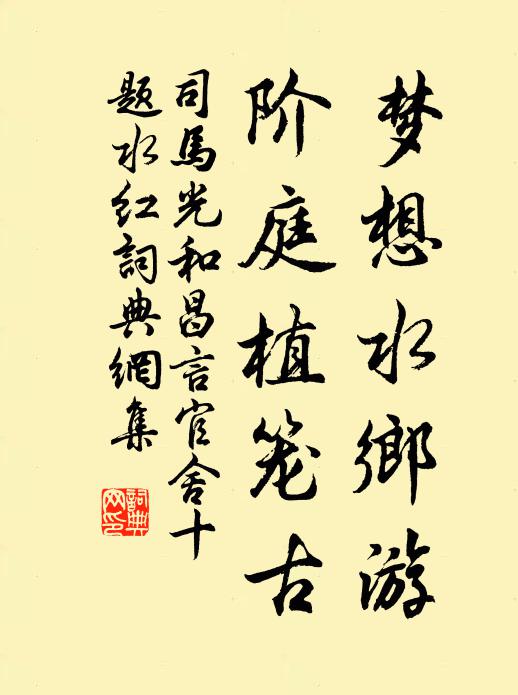 梦想水鄉游
阶庭植笼古
司馬光和昌言官舍十
题水红詞典網集
詞典网印